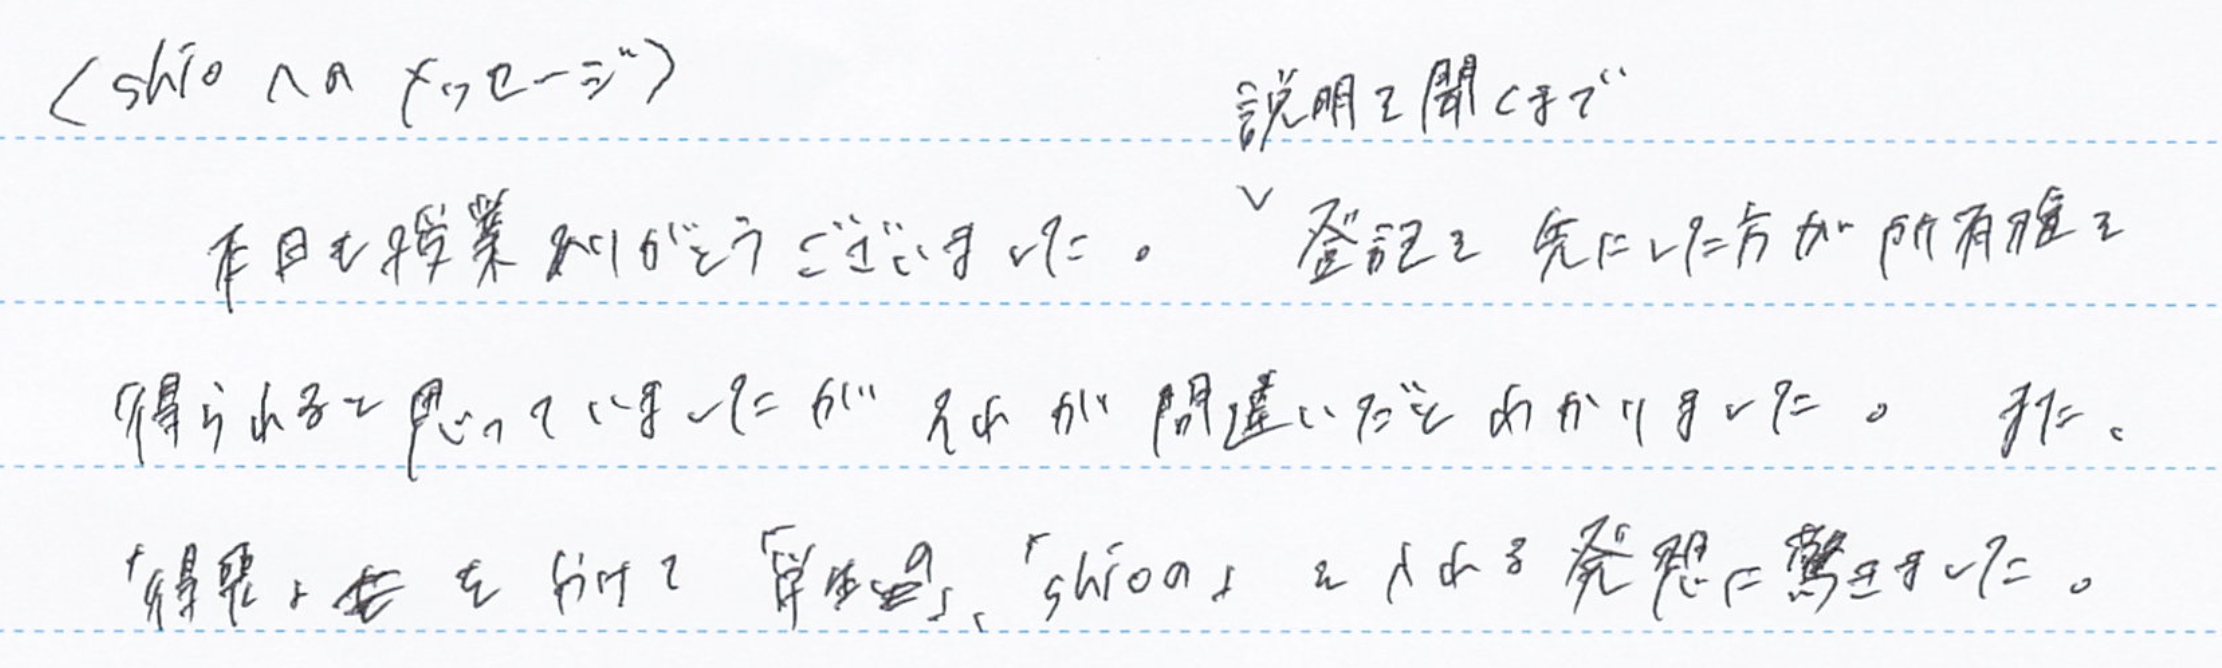 〈shioへのメッセージ〉
説明を聞くまで
本日も授業ありがとうございました。 ∨ 登記を先にした方が所有権を
得られると思っていましたがそれが間違いだとわかりました。 また、
「得喪」をわけて「学生の」、「shioの」を入れる発想に驚きました。